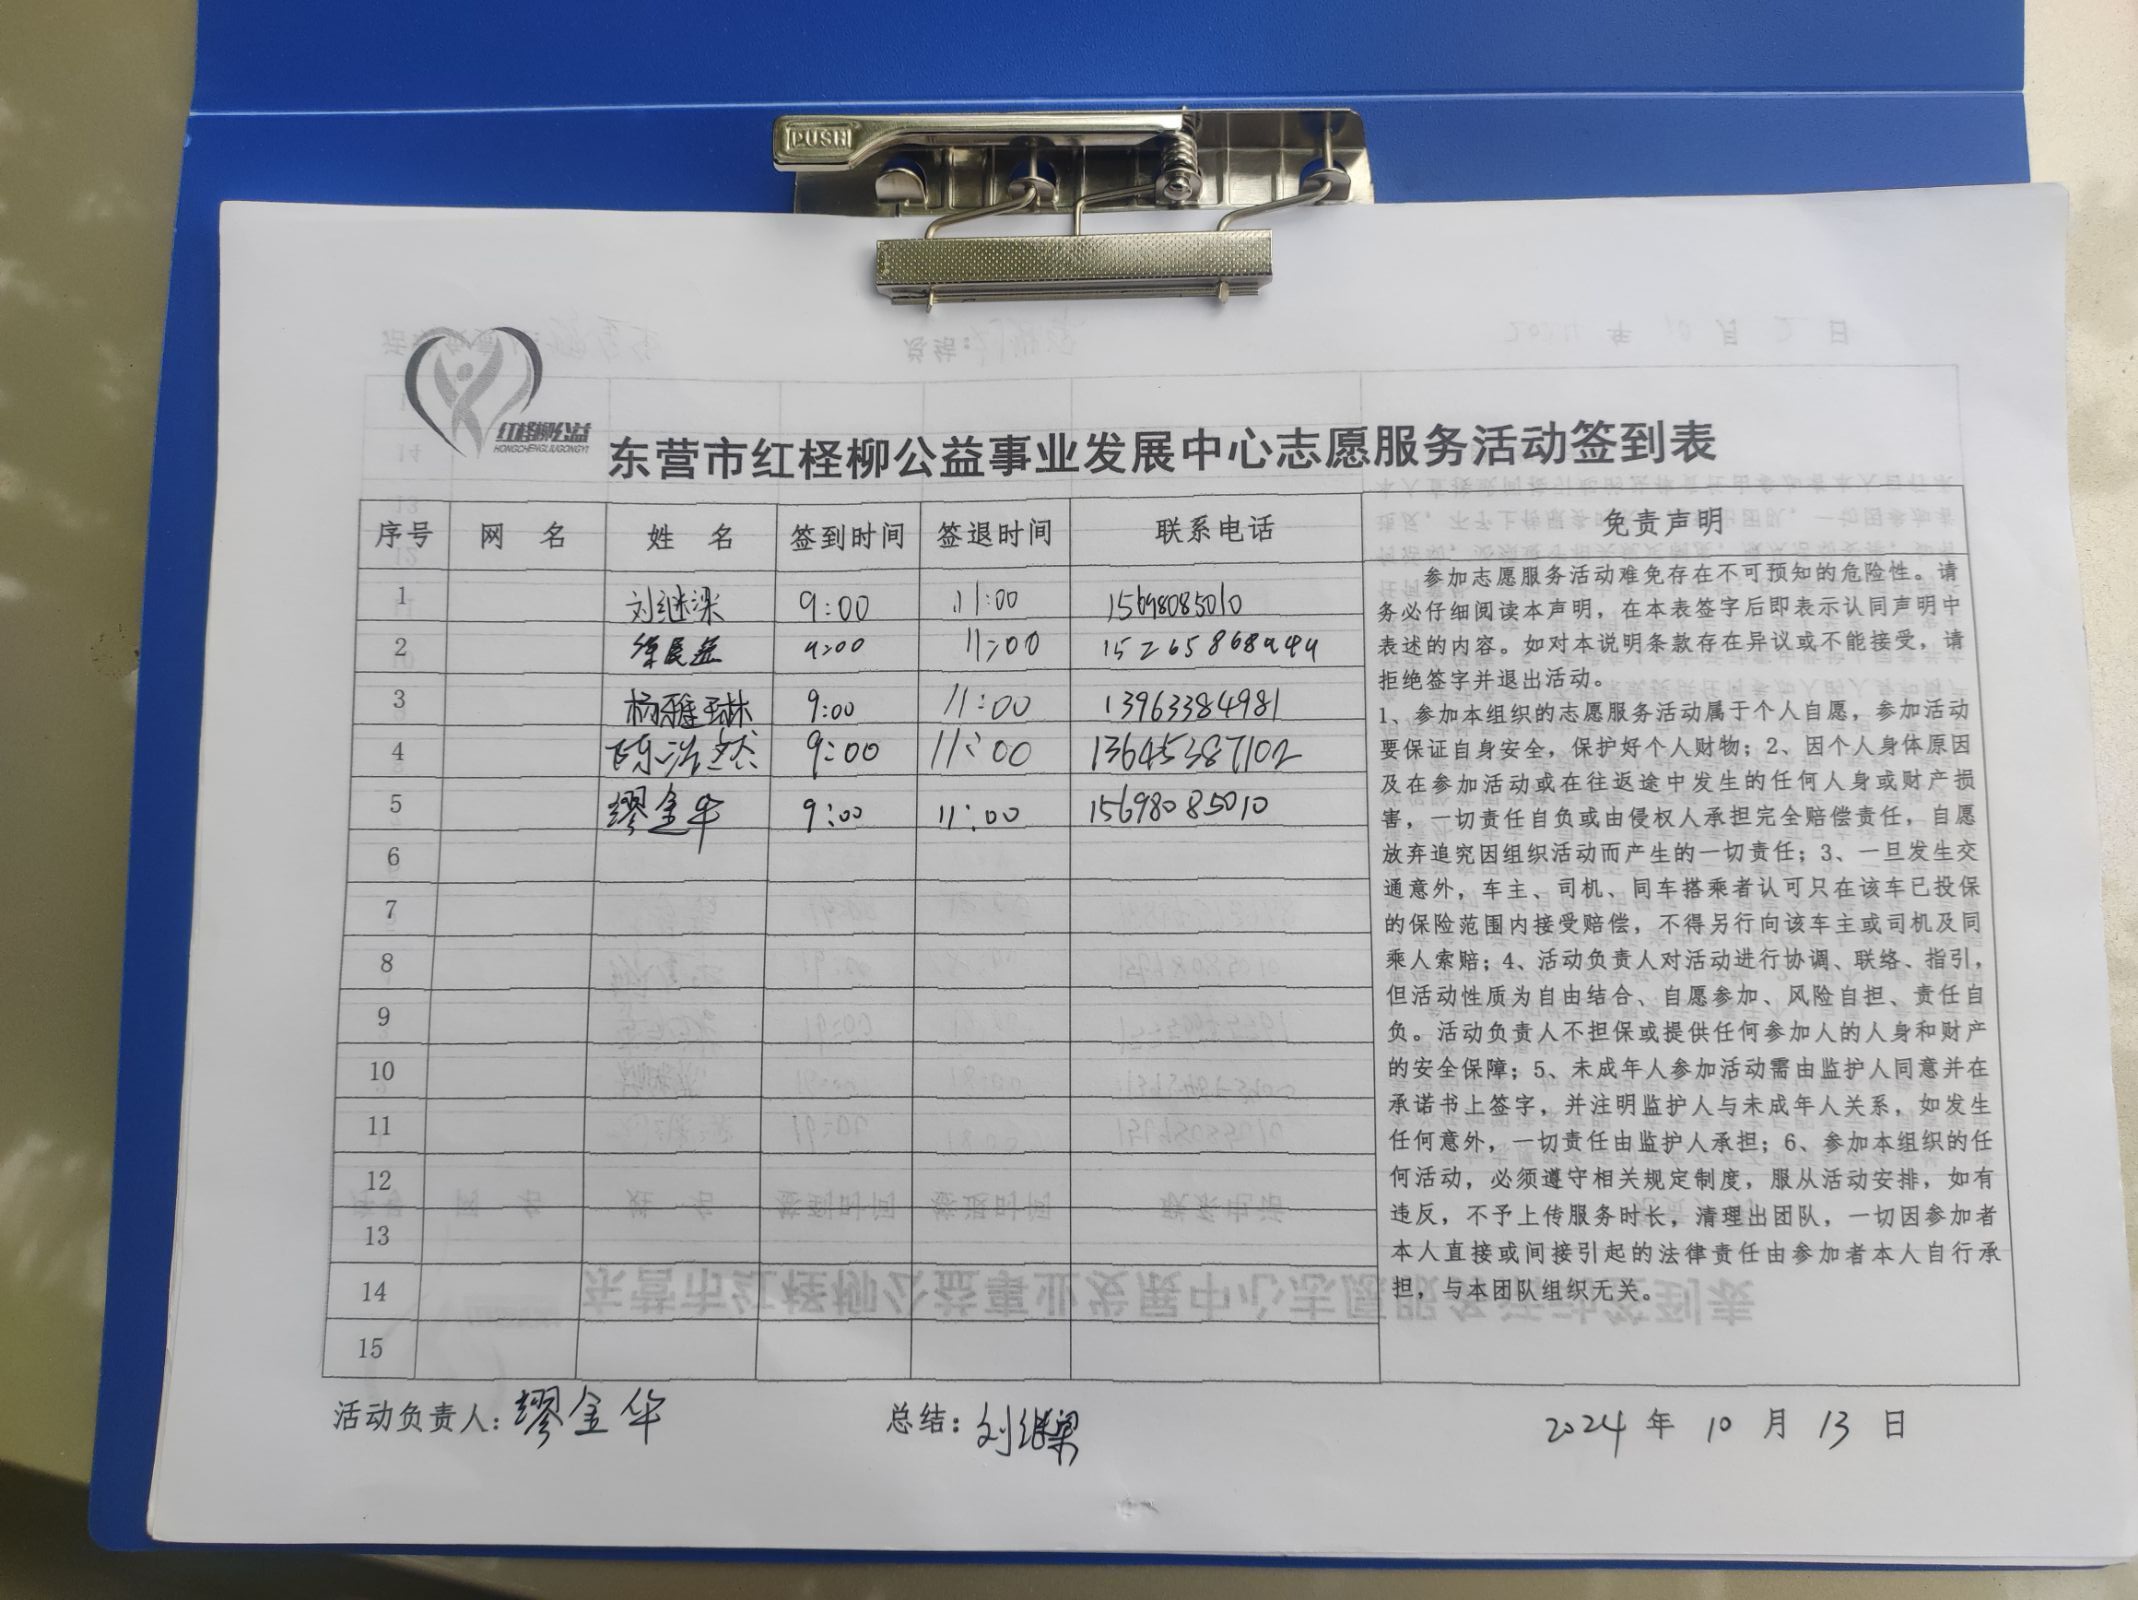 PUSH
红柽柳公益
HONGCHENGLIUGONGYI
东营市红柽柳公益事业发展中心志愿服务活动签到表
序号 网 名 姓 名 签到时间 签退时间 联系电话 免责声明
1 刘继梁 9:00 11:00 15698085010
2 9:00 11:00 15265868944
3 杨雅琳 9:00 11:00 13963384981
4 陈浩然 9:00 11:00 13645387102
5 缪金华 9:00 11:00 15698085010
6
7
8
9
10
11
12
13
14
15
参加志愿服务活动难免存在不可预知的危险性。请
务必仔细阅读本声明，在本表签字后即表示认同声明中
表述的内容。如对本说明条款存在异议或不能接受，请
拒绝签字并退出活动。
1、参加本组织的志愿服务活动属于个人自愿，参加活动
要保证自身安全，保护好个人财物；2、因个人身体原因
及在参加活动或在往返途中发生的任何人身或财产损
害，一切责任自负或由侵权人承担完全赔偿责任，自愿
放弃追究因组织活动而产生的一切责任；3、一旦发生交
通意外，车主、司机、同车搭乘者认可只在该车已投保
的保险范围内接受赔偿，不得另行向该车主或司机及同
乘人索赔；4、活动负责人对活动进行协调、联络、指引，
但活动性质为自由结合、自愿参加、风险自担、责任自
负。活动负责人不担保或提供任何参加人的人身和财产
的安全保障；5、未成年人参加活动需由监护人同意并在
承诺书上签字，并注明监护人与未成年人关系，如发生
任何意外，一切责任由监护人承担；6、参加本组织的任
何活动，必须遵守相关规定制度，服从活动安排，如有
违反，不予上传服务时长，清理出团队，一切因参加者
本人直接或间接引起的法律责任由参加者本人自行承
担，与本团队组织无关。
活动负责人：缪金华 总结：刘继梁 2024 年 10 月 13 日